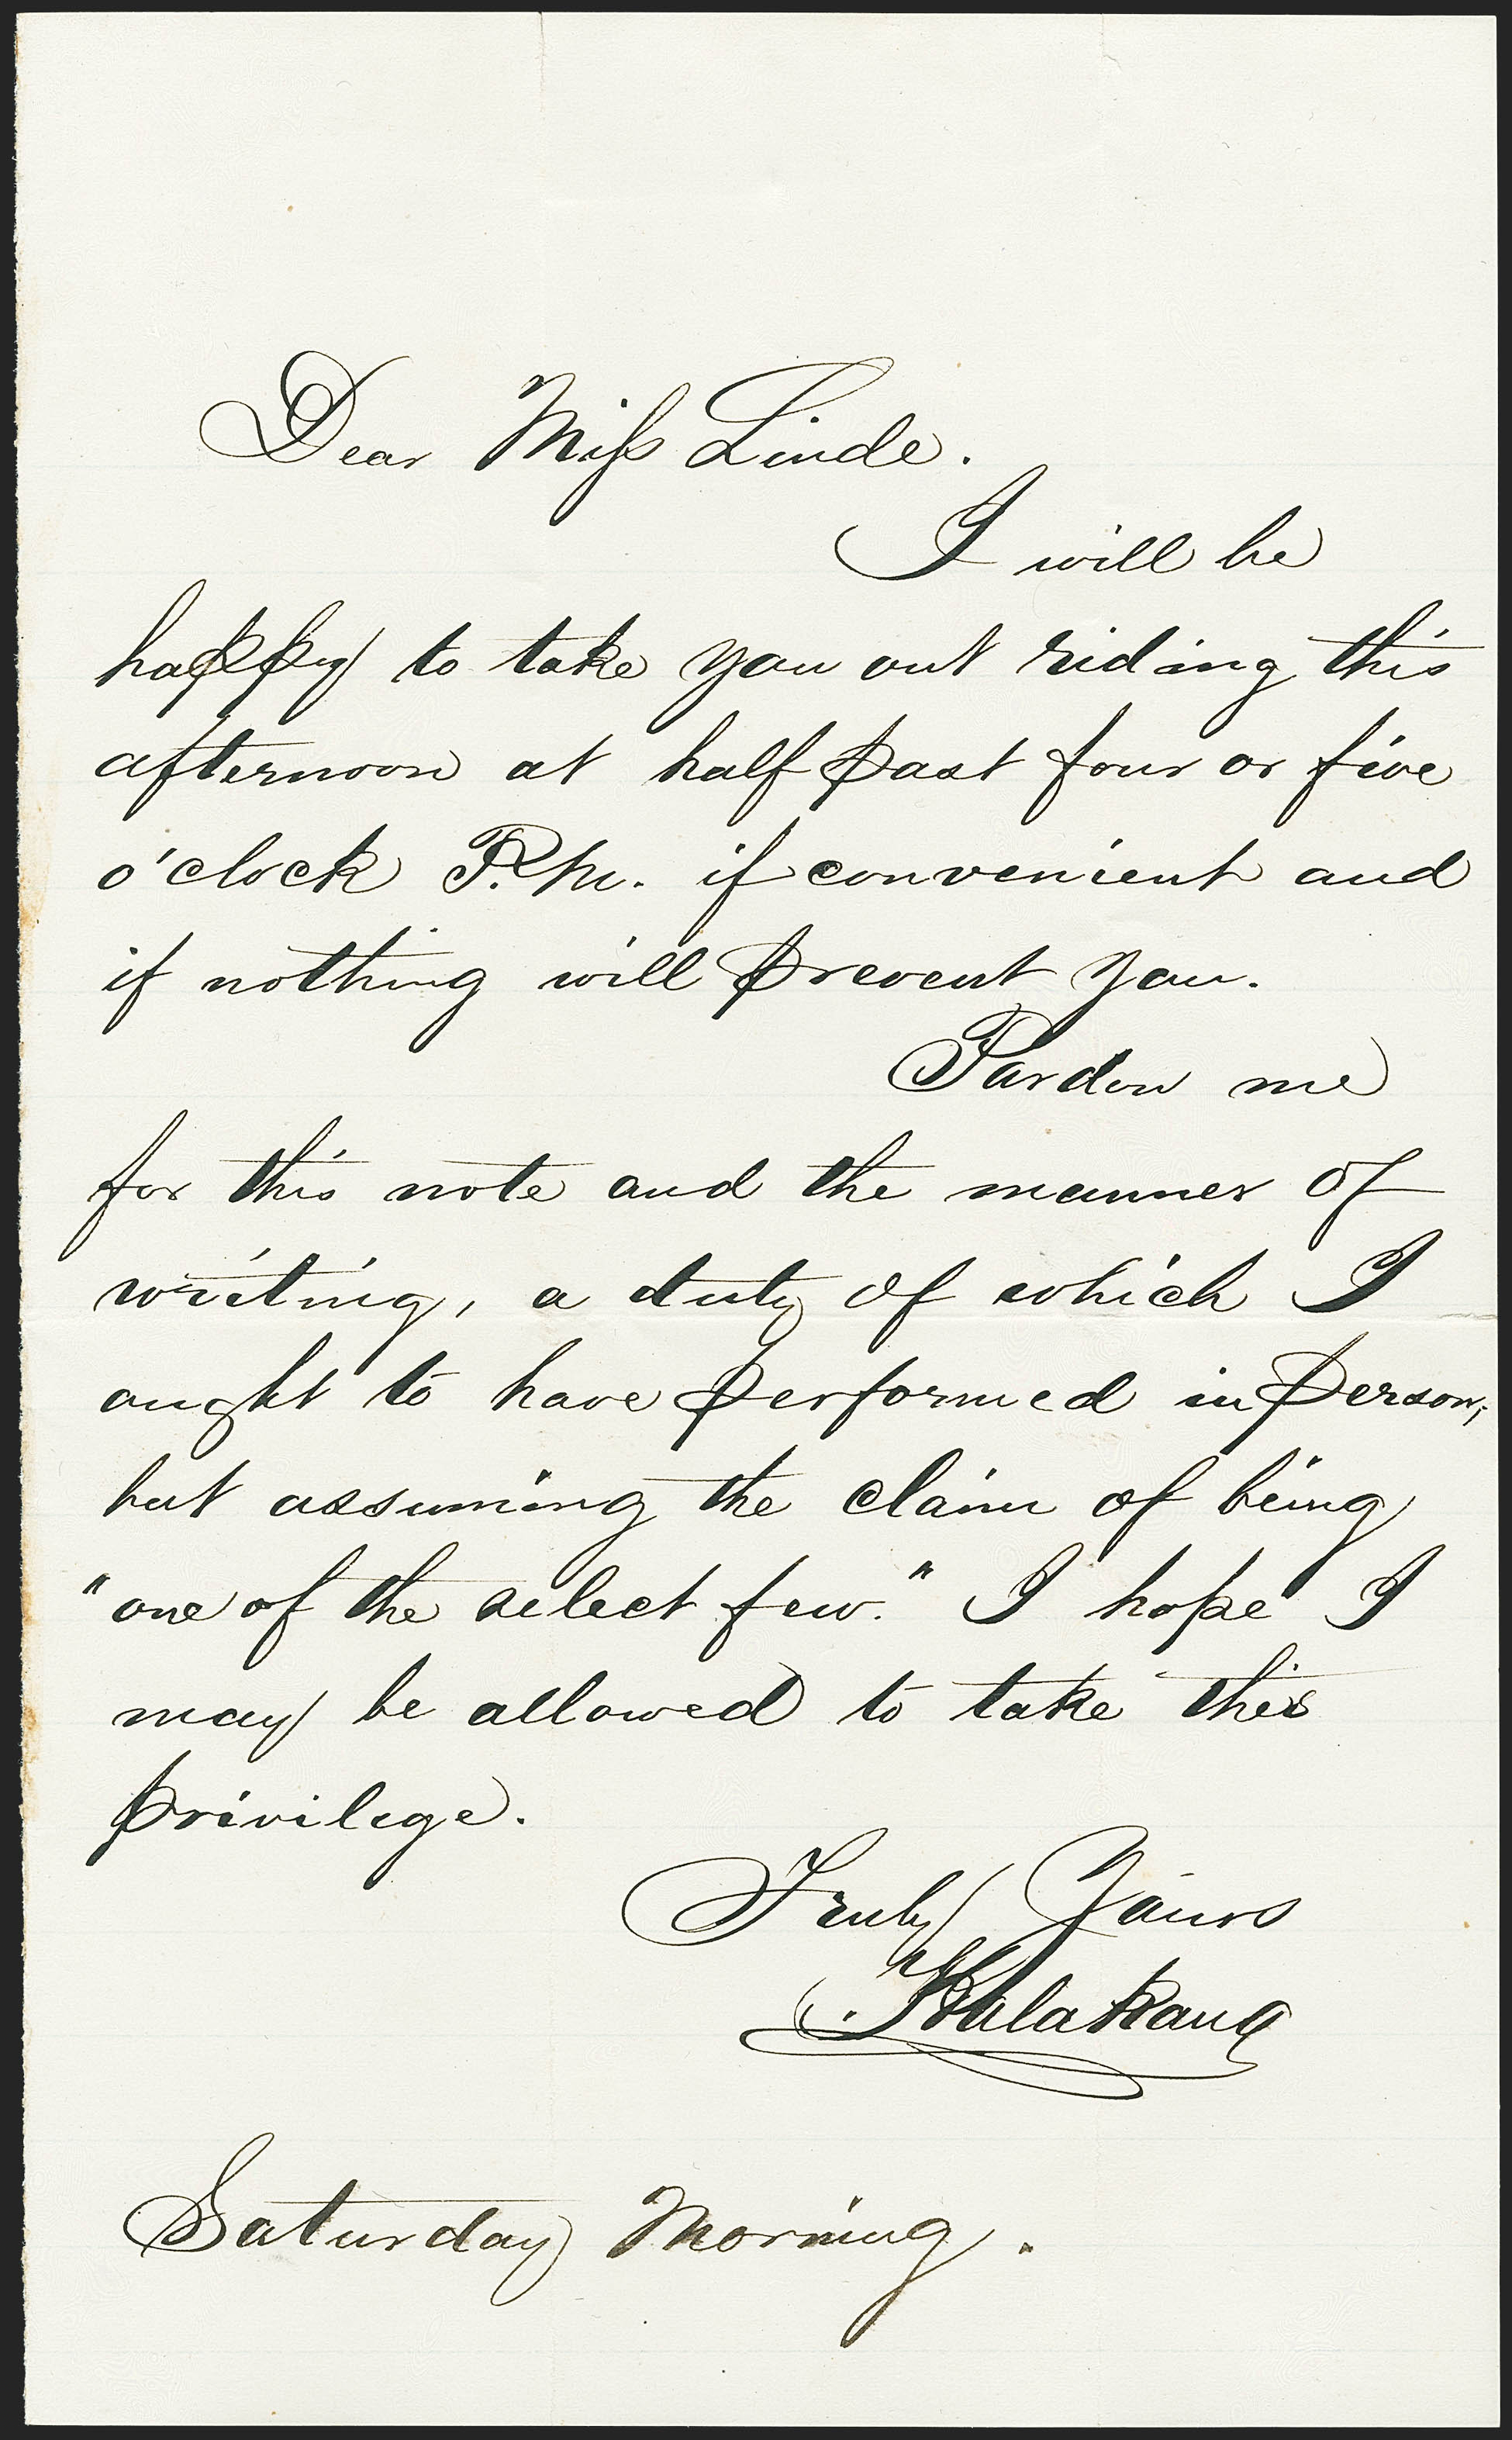 Dear Miss Linde.
I will be
happy to take you out riding this
afternoon at half past four or five
o'clock P.M. if convenient and
if nothing will prevent you.
Pardon me
for this note and the manner of
writing, a duty of which I
ought to have performed in person,
but assuming the claim of being
"one of the select few." I hope I
may be allowed to take this
privilege.
Truly Yours
Kalakaua
Saturday Morning.